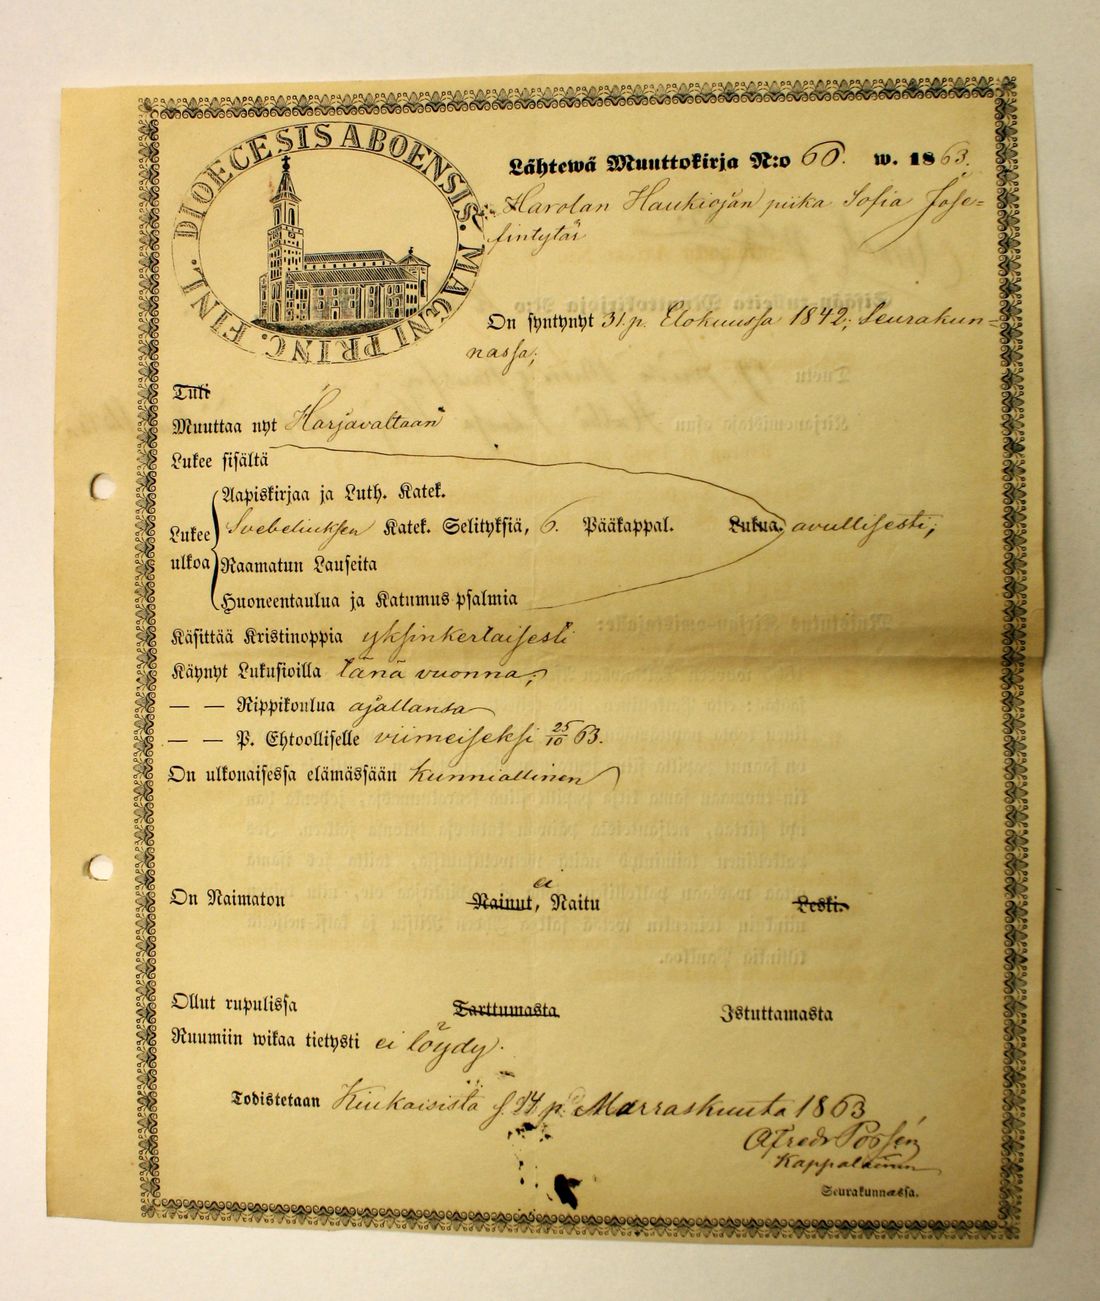 DIOECESIS ABOENSIS. MAGNI PRINC. FINL.
Lähtewä Muuttokirja N:o 60. w. 1863.
Harolan Haukiojan piika Sofia Jose-
fintytär
On syntynyt 31. p. Elokuussa 1842; Seurakun-
nassa;
Tuli
Muuttaa nyt Harjavaltaan
Lukee sisältä
Aapiskirjaa ja Luth. Katek.
Lukee ulkoa Svebeliuksen Katek. Selityksiä, 6. Pääkappal. Lukua. avullisesti;
Raamatun Lauseita
Huoneentaulua ja Katumus psalmia
Käsittää Kristinoppia yksinkertaisesti
Käynyt Lukusioilla tänä vuonna;
— — Rippikoulua ajallansa
— — P. Ehtoolliselle viimeiseksi 25/10 63.
On ulkonaisessa elämässään kunniallinen
ei
On Naimaton Nainut, Naitu Leski.
Ollut rupulissa Tarttumasta Istuttamasta
Ruumiin wikaa tietysti ei löydy.
Todistetaan Kiukaisista s. 14 p. Marraskuuta 1863
Kappalainen
Seurakunnassa.